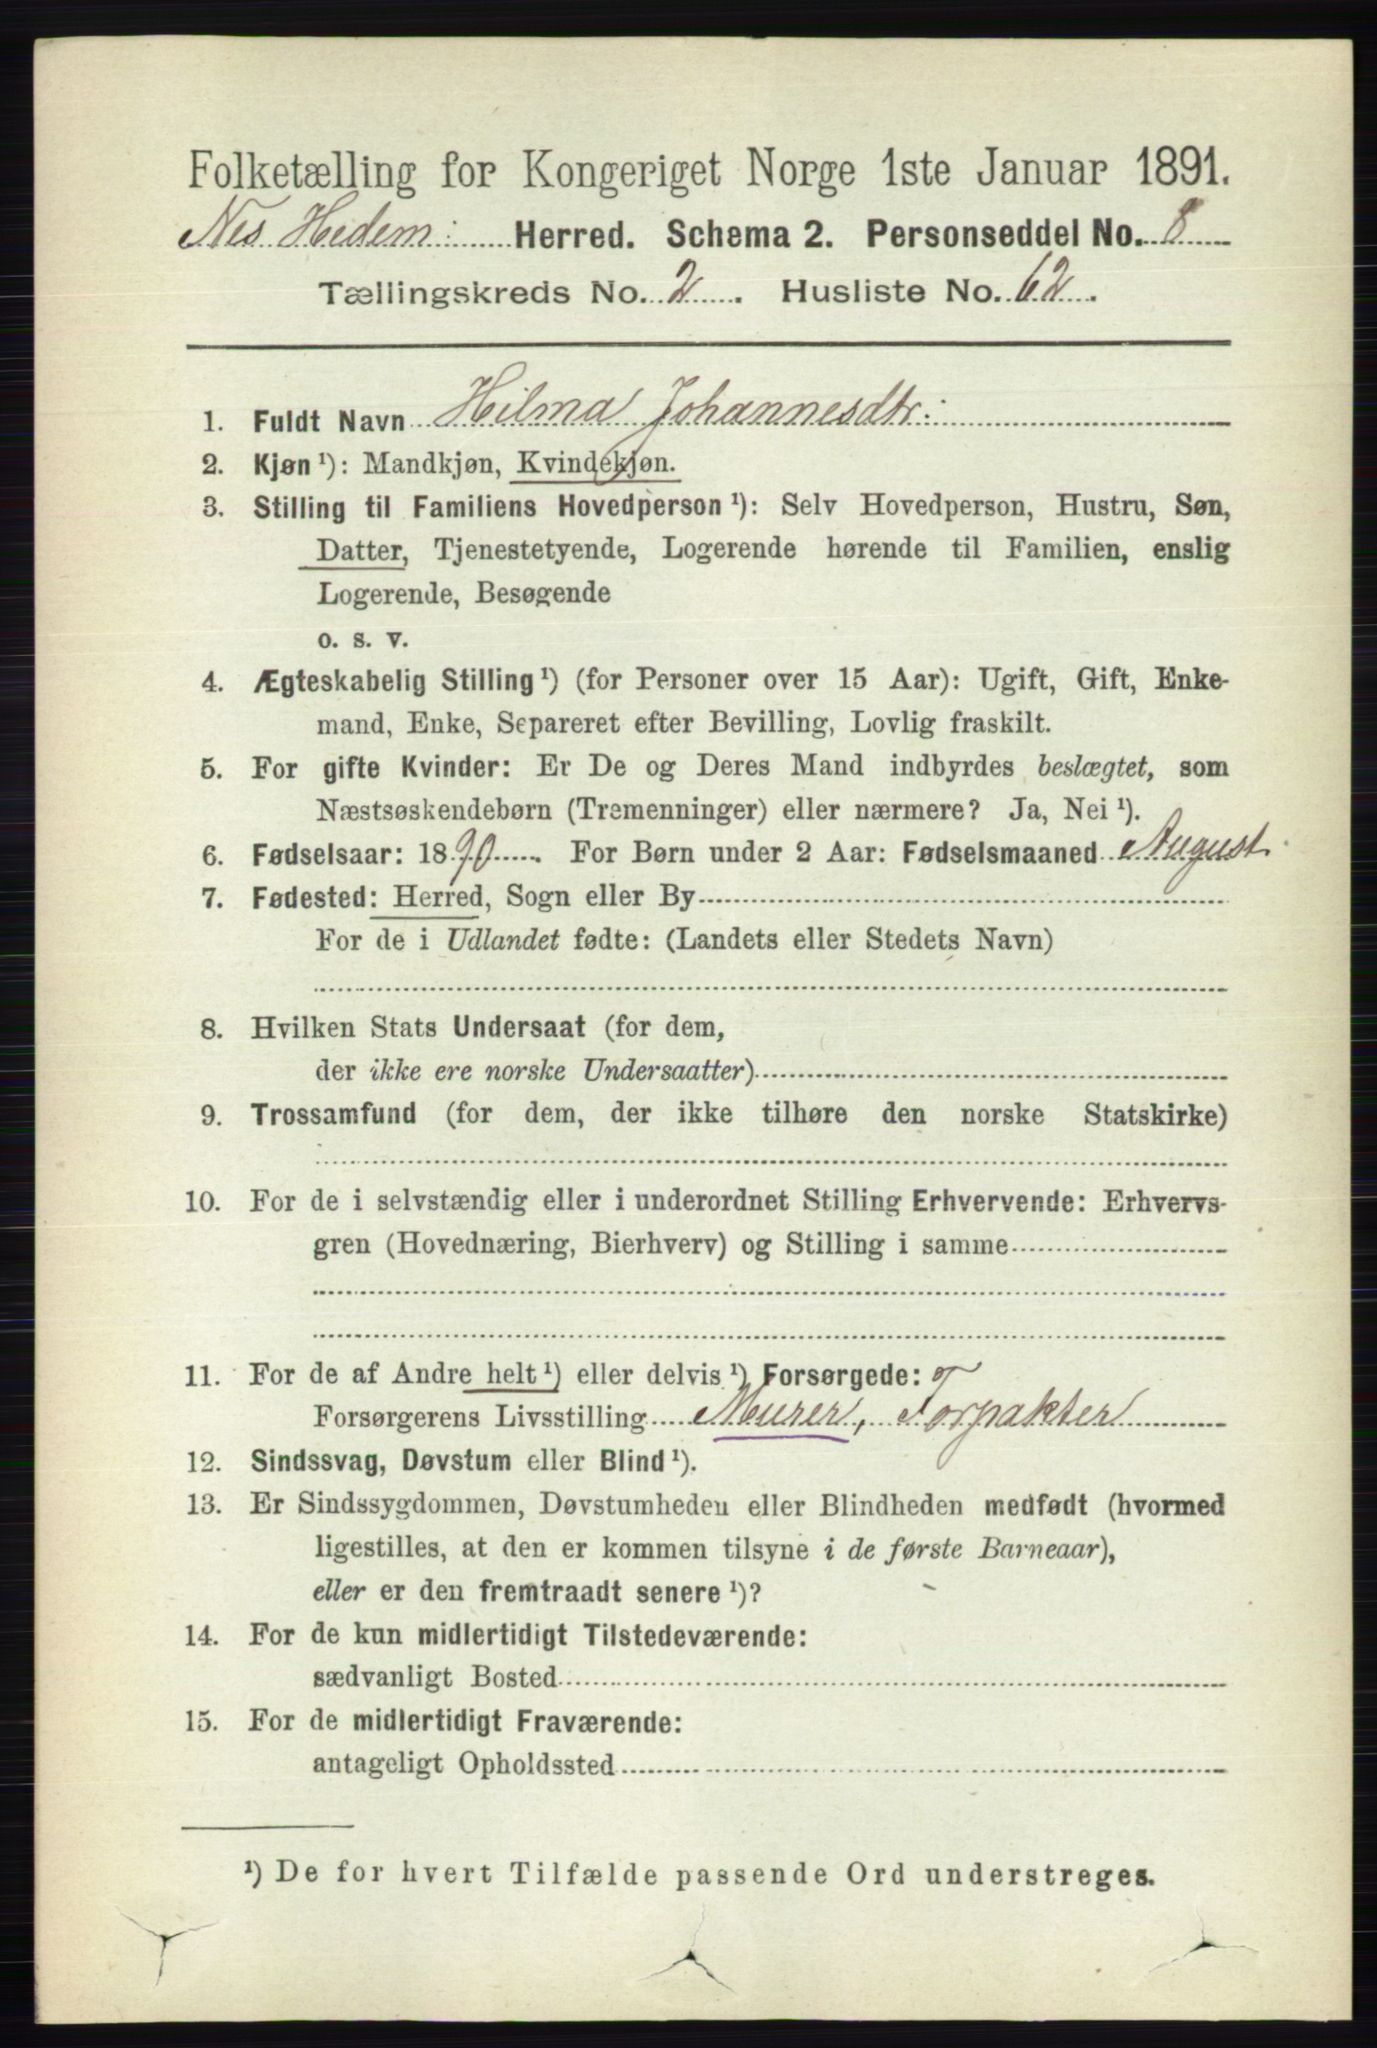 Folketælling for Kongeriget Norge 1ste Januar 1891.
Nes Hedem: Herred. Schema 2. Personseddel No. 8
Tællingskreds No. 2. Husliste No. 62.
1. Fuldt Navn Hilma Johannesdtr:
2. Kjøn ¹): Mandkjøn, Kvindekjøn.
3. Stilling til Familiens Hovedperson ¹): Selv Hovedperson, Hustru, Søn,
Datter, Tjenestetyende, Logerende hørende til Familien, enslig
Logerende, Besøgende
o. s. v.
4. Ægteskabelig Stilling ¹) (for Personer over 15 Aar): Ugift, Gift, Enke-
mand, Enke, Separeret efter Bevilling, Lovlig fraskilt.
5. For gifte Kvinder: Er De og Deres Mand indbyrdes beslægtet, som
Næstsøskendebørn (Tremenninger) eller nærmere? Ja, Nei ¹).
6. Fødselsaar: 1890. For Børn under 2 Aar: Fødselsmaaned August.
7. Fødested: Herred, Sogn eller By
For de i Udlandet fødte: (Landets eller Stedets Navn)
8. Hvilken Stats Undersaat (for dem,
der ikke ere norske Undersaatter)
9. Trossamfund (for dem, der ikke tilhøre den norske Statskirke)
10. For de i selvstændig eller i underordnet Stilling Erhvervende: Erhvervs-
gren (Hovednæring, Bierhverv) og Stilling i samme
11. For de af Andre helt ¹) eller delvis ¹) Forsørgede:
Forsørgerens Livsstilling Murer, Forpakter
12. Sindssvag, Døvstum eller Blind ¹).
13. Er Sindssygdommen, Døvstumheden eller Blindheden medfødt (hvormed
ligestilles, at den er kommen tilsyne i de første Barneaar),
eller er den fremtraadt senere ¹)?
14. For de kun midlertidigt Tilstedeværende:
sædvanligt Bosted
15. For de midlertidigt Fraværende:
antageligt Opholdssted
¹) De for hvert Tilfælde passende Ord understreges.